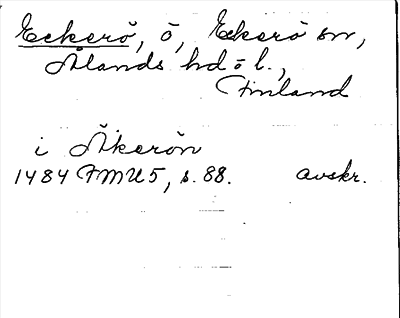 Eckerö, ö, Eckerö sn,
Ålands hd o l.,
Finland
i Åkerön
1484 FMU 5, s. 88. avskr.